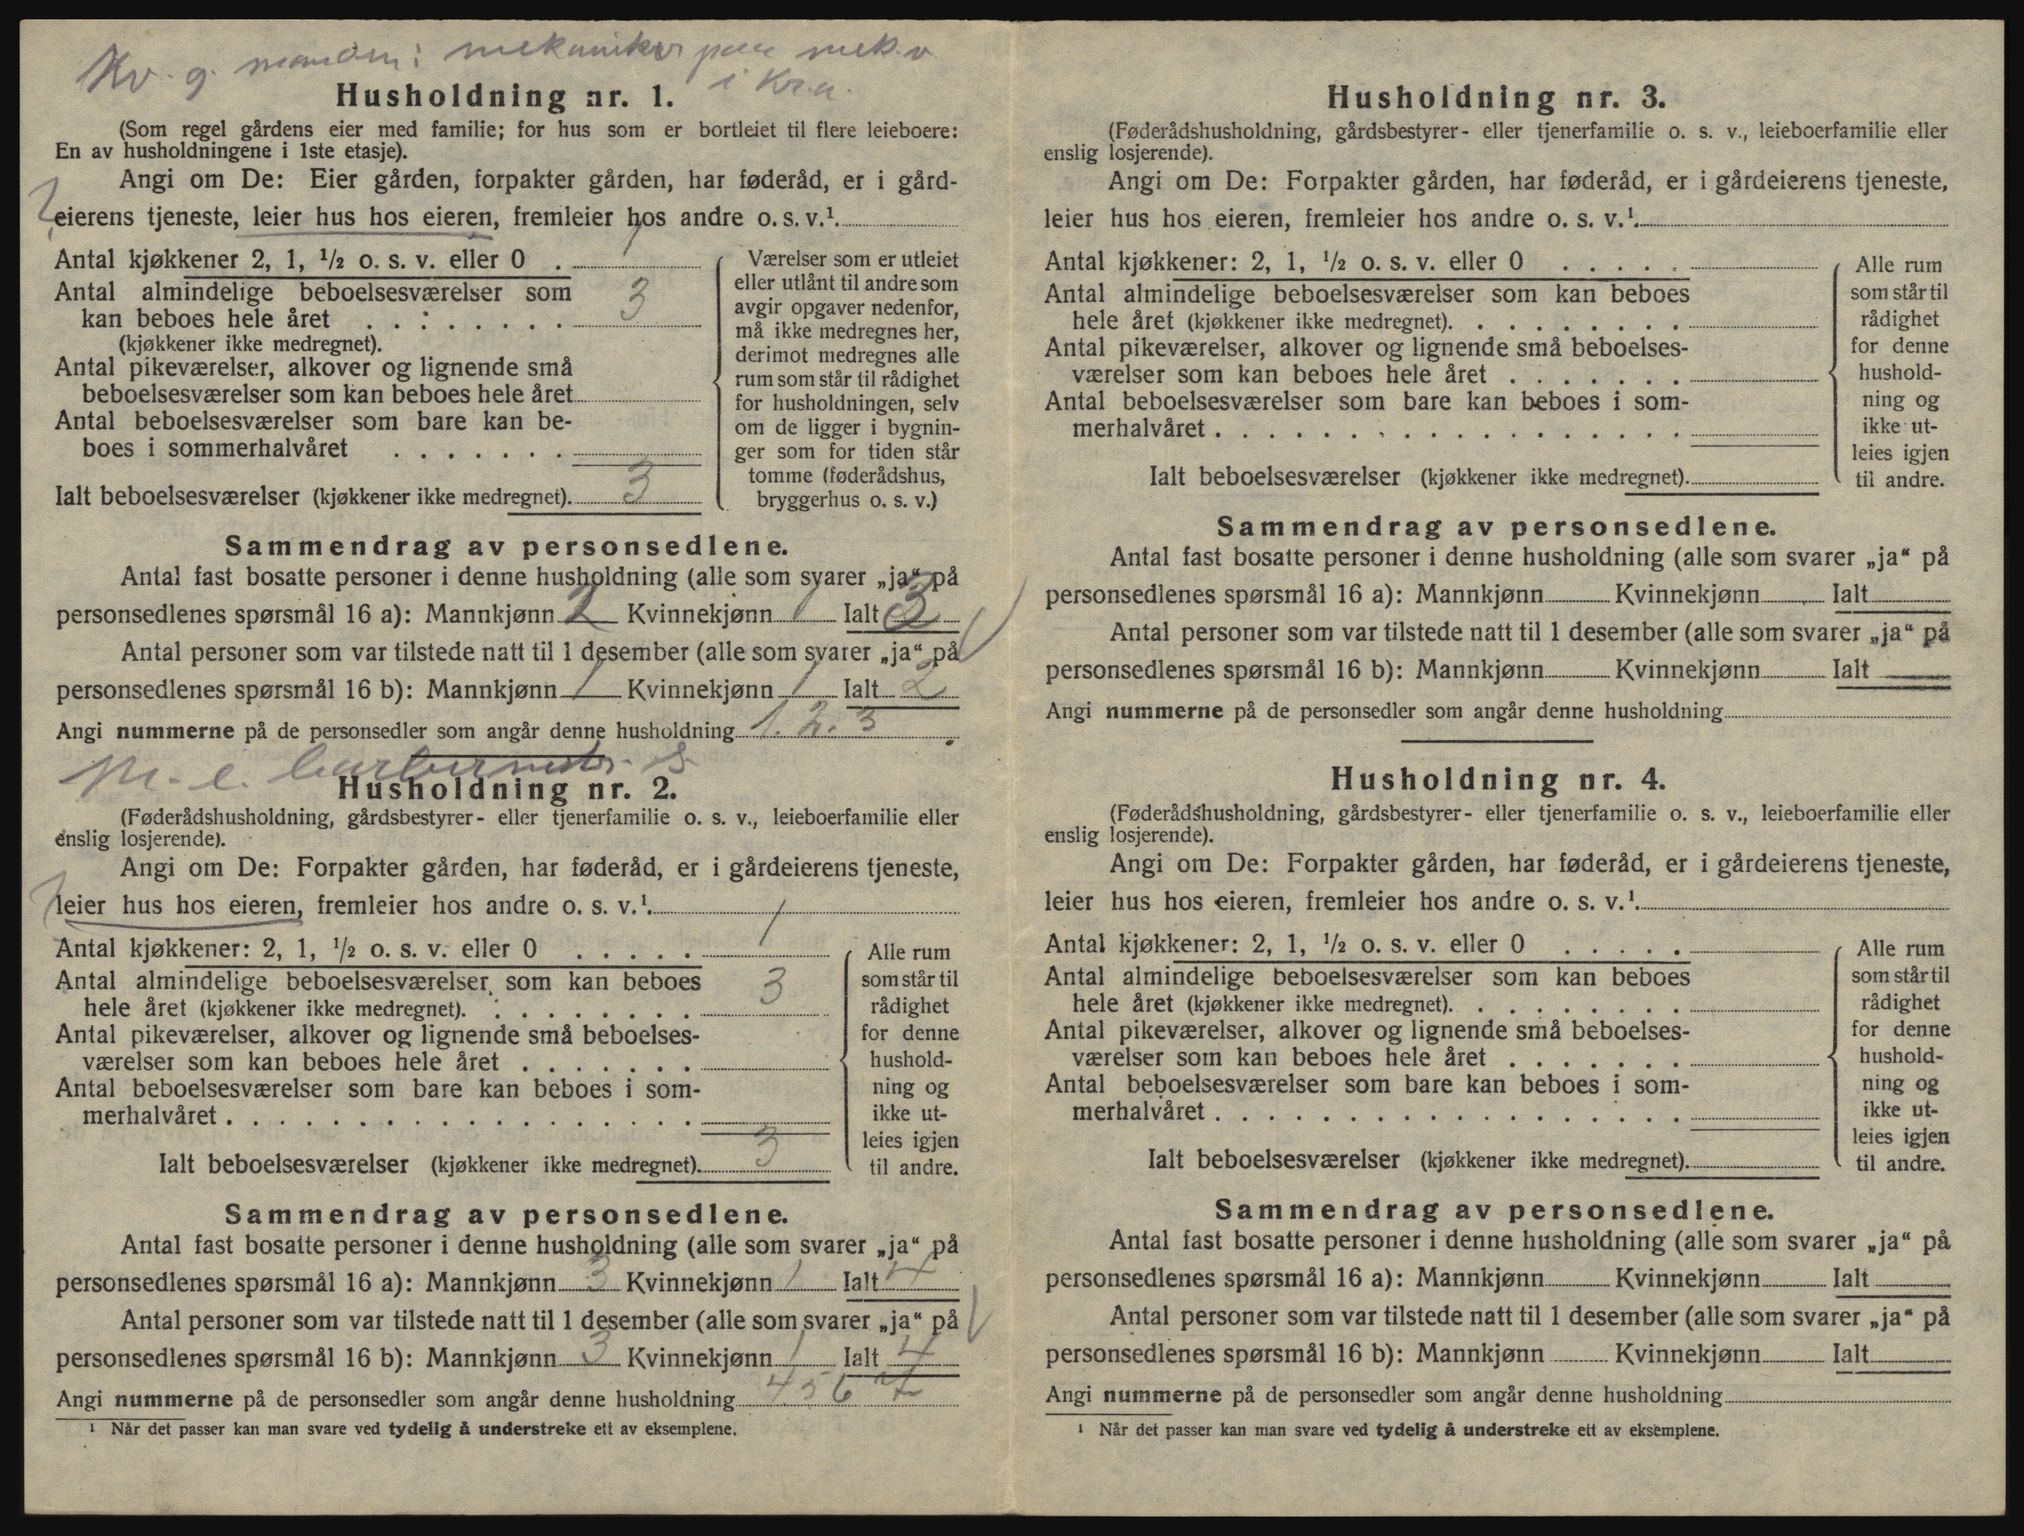 Kv. g. manden: mekaniker paa mek. v.
i Kr.a.
Husholdning nr. 1.
(Som regel gårdens eier med familie; for hus som er bortleiet til flere leieboere:
En av husholdningene i 1ste etasje).
Angi om De: Eier gården, forpakter gården, har føderåd, er i gård-
eierens tjeneste, leier hus hos eieren, fremleier hos andre o. s. v.¹.
Antal kjøkkener 2, 1, ½ o. s. v. eller 0 . 1
Antal almindelige beboelsesværelser som
kan beboes hele året . . . . . . . . 3
(kjøkkener ikke medregnet).
Antal pikeværelser, alkover og lignende små
beboelsesværelser som kan beboes hele året
Antal beboelsesværelser som bare kan be-
boes i sommerhalvåret . . . . . . .
Ialt beboelsesværelser (kjøkkener ikke medregnet). 3
Værelser som er utleiet
eller utlånt til andre som
avgir opgaver nedenfor,
må ikke medregnes her,
derimot medregnes alle
rum som står til rådighet
for husholdningen, selv
om de ligger i bygnin-
ger som for tiden står
tomme (føderådshus,
bryggerhus o. s. v.)
Sammendrag av personsedlene.
Antal fast bosatte personer i denne husholdning (alle som svarer „ja“ på
personsedlenes spørsmål 16 a): Mannkjønn 2 Kvinnekjønn 1 Ialt 3
Antal personer som var tilstede natt til 1 desember (alle som svarer „ja“ på
personsedlenes spørsmål 16 b): Mannkjønn 1 Kvinnekjønn 1 Ialt 2
Angi nummerne på de personsedler som angår denne husholdning 1. 2. 3
M. e.
Husholdning nr. 2.
(Føderådshusholdning, gårdsbestyrer- eller tjenerfamilie o. s. v., leieboerfamilie eller
enslig losjerende).
Angi om De: Forpakter gården, har føderåd, er i gårdeierens tjeneste,
leier hus hos eieren, fremleier hos andre o. s. v.¹.
Antal kjøkkener: 2, 1, ½ o. s. v. eller 0 . . . . . 1
Antal almindelige beboelsesværelser som kan beboes
hele året (kjøkkener ikke medregnet). . . . . . . . . 3
Antal pikeværelser, alkover og lignende små beboelses-
værelser som kan beboes hele året . . . . . . .
Antal beboelsesværelser som bare kan beboes i som-
merhalvåret . . . . . . . . . . . . . . . . . .
Ialt beboelsesværelser (kjøkkener ikke medregnet). 3
Alle rum
som står til
rådighet
for denne
hushold-
ning og
ikke ut-
leies igjen
til andre.
Sammendrag av personsedlene.
Antal fast bosatte personer i denne husholdning (alle som svarer „ja“ på
personsedlenes spørsmål 16 a): Mannkjønn 3 Kvinnekjønn 1 Ialt 4
Antal personer som var tilstede natt til 1 desember (alle som svarer „ja“ på
personsedlenes spørsmål 16 b): Mannkjønn 3 Kvinnekjønn 1 Ialt 4
Angi nummerne på de personsedler som angår denne husholdning 4 5 6 7
¹ Når det passer kan man svare ved tydelig å understreke ett av eksemplene.
Husholdning nr. 3.
(Føderådshusholdning, gårdsbestyrer- eller tjenerfamilie o. s. v., leieboerfamilie eller
enslig losjerende).
Angi om De: Forpakter gården, har føderåd, er i gårdeierens tjeneste,
leier hus hos eieren, fremleier hos andre o. s. v.¹.
Antal kjøkkener: 2, 1, ½ o. s. v. eller 0 . . . . .
Antal almindelige beboelsesværelser som kan beboes
hele året (kjøkkener ikke medregnet). . . . . . . . .
Antal pikeværelser, alkover og lignende små beboelses-
værelser som kan beboes hele året . . . . . . .
Antal beboelsesværelser som bare kan beboes i som-
merhalvåret . . . . . . . . . . . . . . . . . .
Ialt beboelsesværelser (kjøkkener ikke medregnet).
Alle rum
som står til
rådighet
for denne
hushold-
ning og
ikke ut-
leies igjen
til andre.
Sammendrag av personsedlene.
Antal fast bosatte personer i denne husholdning (alle som svarer „ja“ på
personsedlenes spørsmål 16 a): Mannkjønn Kvinnekjønn Ialt
Antal personer som var tilstede natt til 1 desember (alle som svarer „ja“ på
personsedlenes spørsmål 16 b): Mannkjønn Kvinnekjønn Ialt
Angi nummerne på de personsedler som angår denne husholdning
Husholdning nr. 4.
(Føderådshusholdning, gårdsbestyrer- eller tjenerfamilie o. s. v., leieboerfamilie eller
enslig losjerende).
Angi om De: Forpakter gården, har føderåd, er i gårdeierens tjeneste,
leier hus hos eieren, fremleier hos andre o. s. v.¹.
Antal kjøkkener: 2, 1, ½ o. s. v. eller 0 . . . . .
Antal almindelige beboelsesværelser som kan beboes
hele året (kjøkkener ikke medregnet). . . . . . . . .
Antal pikeværelser, alkover og lignende små beboelses-
værelser som kan beboes hele året . . . . . . .
Antal beboelsesværelser som bare kan beboes i som-
merhalvåret . . . . . . . . . . . . . . . . . .
Ialt beboelsesværelser (kjøkkener ikke medregnet).
Alle rum
som står til
rådighet
for denne
hushold-
ning og
ikke ut-
leies igjen
til andre.
Sammendrag av personsedlene.
Antal fast bosatte personer i denne husholdning (alle som svarer „ja“ på
personsedlenes spørsmål 16 a): Mannkjønn Kvinnekjønn Ialt
Antal personer som var tilstede natt til 1 desember (alle som svarer „ja“ på
personsedlenes spørsmål 16 b): Mannkjønn Kvinnekjønn Ialt
Angi nummerne på de personsedler som angår denne husholdning
¹ Når det passer kan man svare ved tydelig å understreke ett av eksemplene.